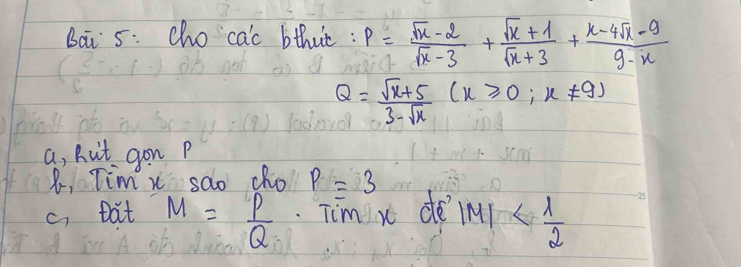 Bài 5: Cho các bthức: P = (√x - 2)/(√x - 3) + (√x + 1)/(√x + 3) + (x - 4√x - 9)/(9 - x)
Q = (√x + 5)/(3 - √x) (x ≥ 0; x ≠ 9)
a, Rút gọn P
b, Tìm x sao cho P = 3
c, Đặt M = P/Q. Tìm x để |M| < 1/2